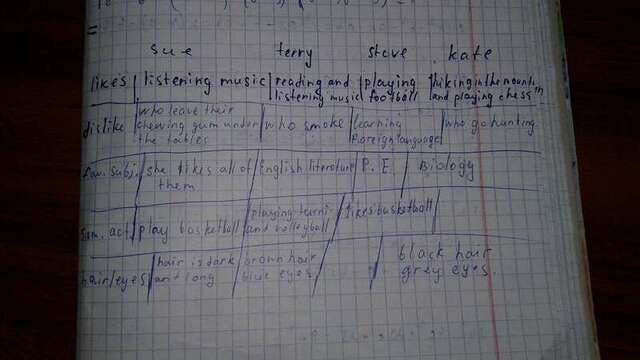 sue terry steve kate
likes listening music reading and playing hiking in the mount
listening music football and playing chess
who leave their
dislike chewing gum under who smoke learning who go hunting.
the tables foreign language
fav. subj. she likes all of English literature P. E. Biology
them
play basketball playing tenni likes basketball
and volleyball
hair is dark brown hair black hair
hair/eyes and long blue eyes grey eyes.